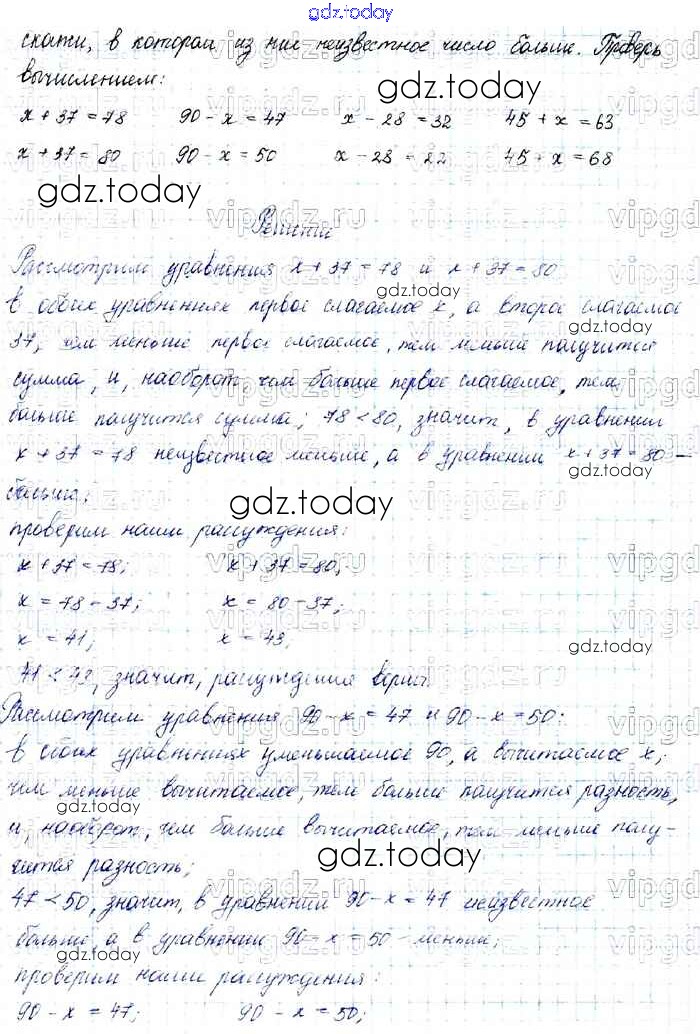 gdz.today
скажи, в котором из них неизвестное число больше. Проверь
вычислением:
x + 37 = 78 90 - x = 47 x - 28 = 32 45 + x = 63
x + 37 = 80 90 - x = 50 x - 28 = 22 45 + x = 68
gdz.today
gdz.today
Решение
Рассмотрим уравнения x + 37 = 78 и x + 37 = 80
в обоих уравнениях первое слагаемое x, а второе слагаемое
37, чем меньше первое слагаемое, тем меньше получится
сумма, и, наоборот, чем больше первое слагаемое, тем
больше получится сумма; 78 < 80, значит, в уравнении
x + 37 = 78 неизвестное меньше, а в уравнении x + 37 = 80 -
больше;
gdz.today
проверим наши рассуждения:
x + 37 = 78; x + 37 = 80;
x = 78 - 37; x = 80 - 37;
x = 41; x = 43;
gdz.today
41 < 43, значит, рассуждения верны.
Рассмотрим уравнения 90 - x = 47 и 90 - x = 50:
в обоих уравнениях уменьшаемое 90, а вычитаемое x;
чем меньше вычитаемое, тем больше получится разность,
и, наоборот, чем больше вычитаемое, тем меньше полу-
чится разность;
gdz.today
47 < 50, значит, в уравнении 90 - x = 47 неизвестное
больше, а в уравнении 90 - x = 50 - меньше;
проверим наши рассуждения:
90 - x = 47; 90 - x = 50;